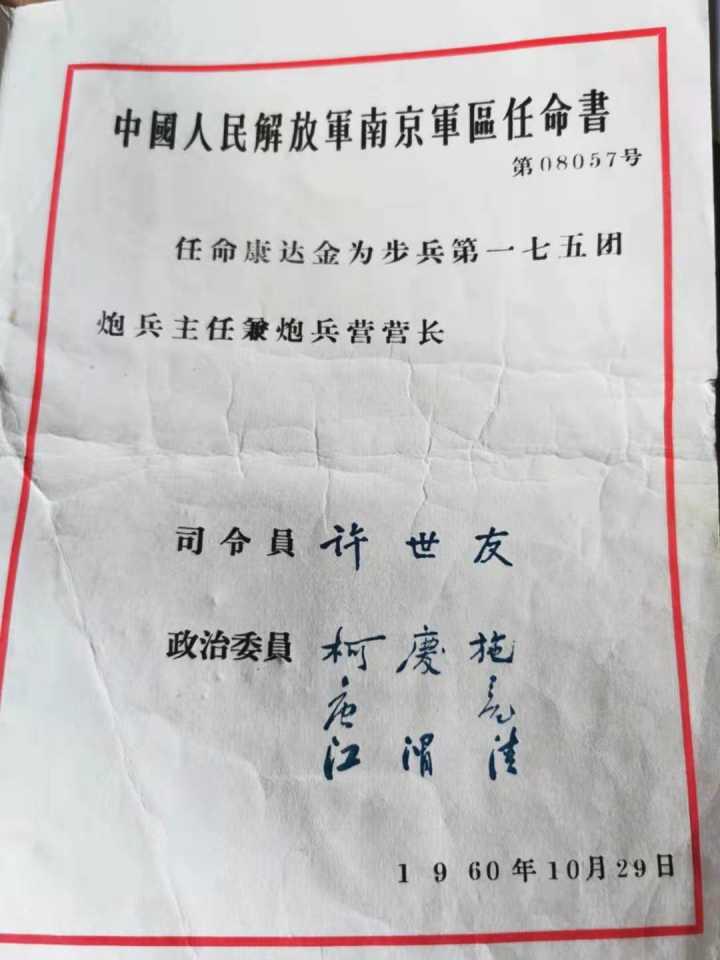 中國人民解放軍南京軍區任命書
第08057号
任命康达金为步兵第一七五团
炮兵主任兼炮兵营营长
司令員 许世友
政治委員 柯慶施
唐亮
江渭清
1960年10月29日